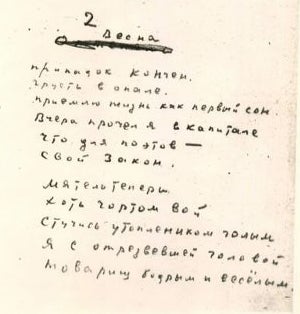 2
Весна
Припадок кончен.
Грусть в опале.
Приемлю жизнь как первый сон.
Вчера прочел я в капитале
Что для поэтов —
Свой Закон.
Мятель теперь
Хоть чортом вой
Стучись утопленником голым
Я с отрезвевшей головой
Товарищ бодрым и весёлым.